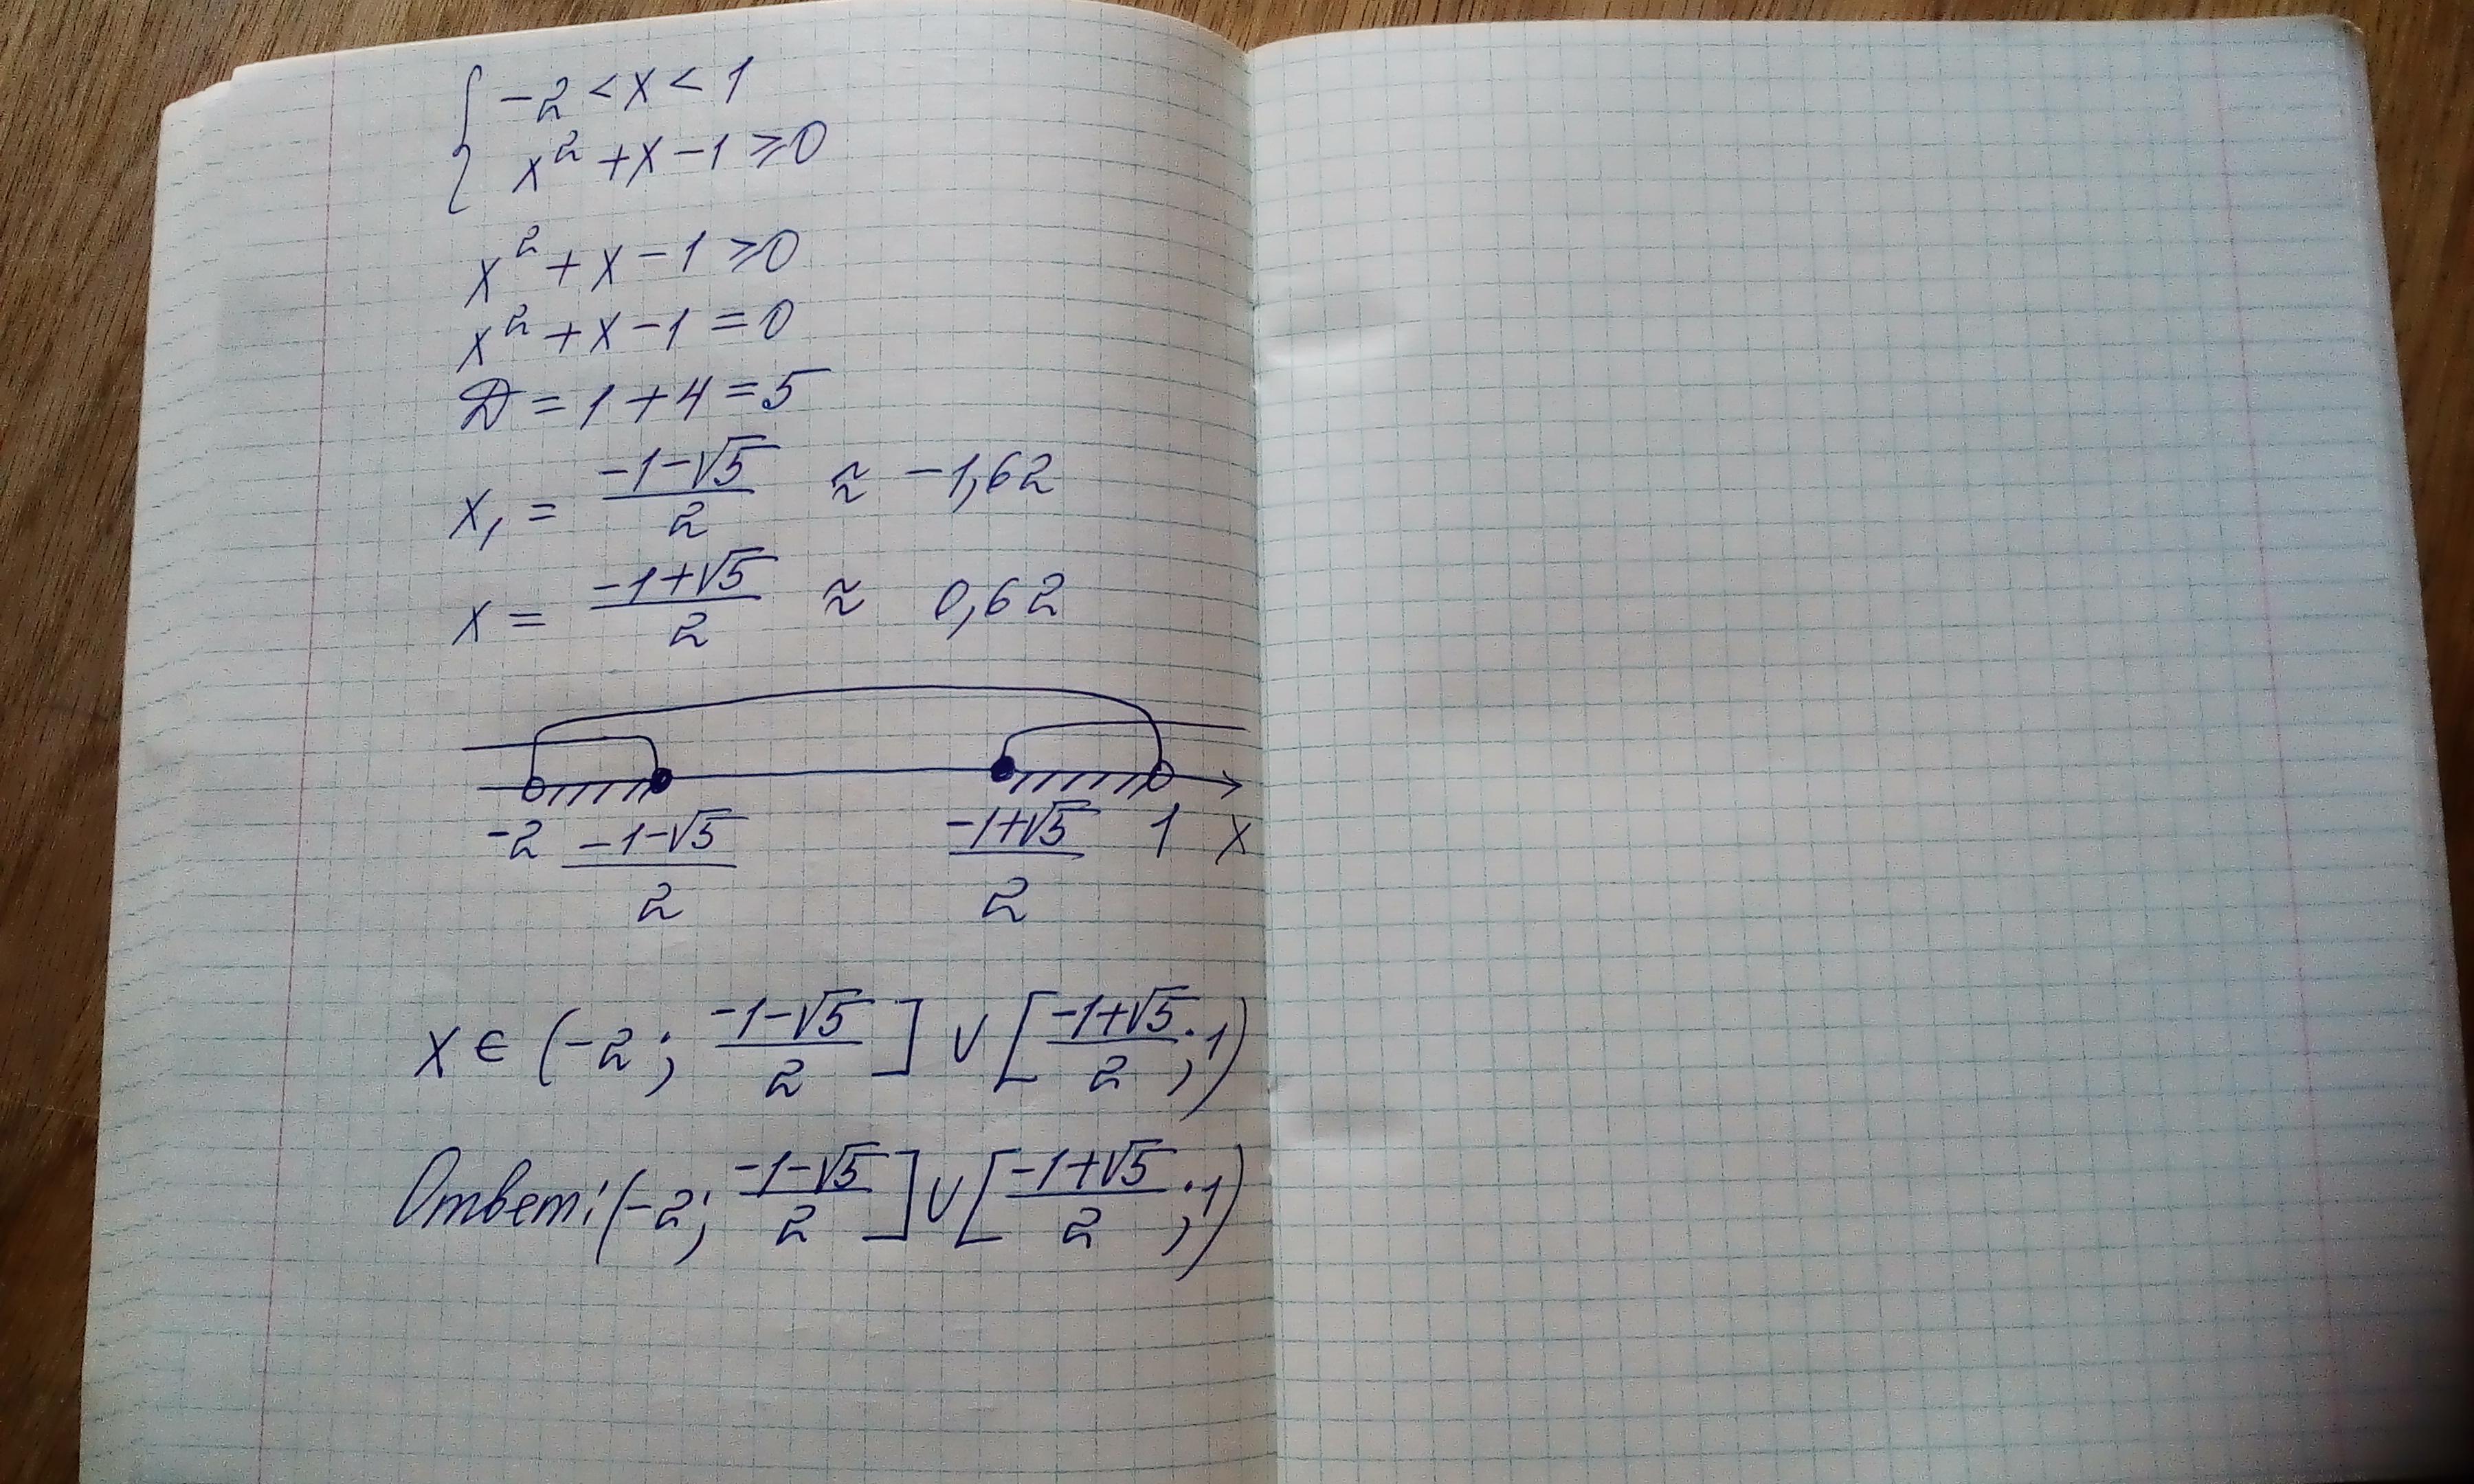 { -2 < x < 1
x² + x - 1 ≥ 0
x² + x - 1 ≥ 0
x² + x - 1 = 0
D = 1 + 4 = 5
x₁ = (-1-√5)/2 ≈ -1,62
x = (-1+√5)/2 ≈ 0,62
-2 (-1-√5)/2 (-1+√5)/2 1 x
x ∈ (-2; (-1-√5)/2] ∪ [(-1+√5)/2; 1)
Ответ: (-2; (-1-√5)/2] ∪ [(-1+√5)/2; 1)